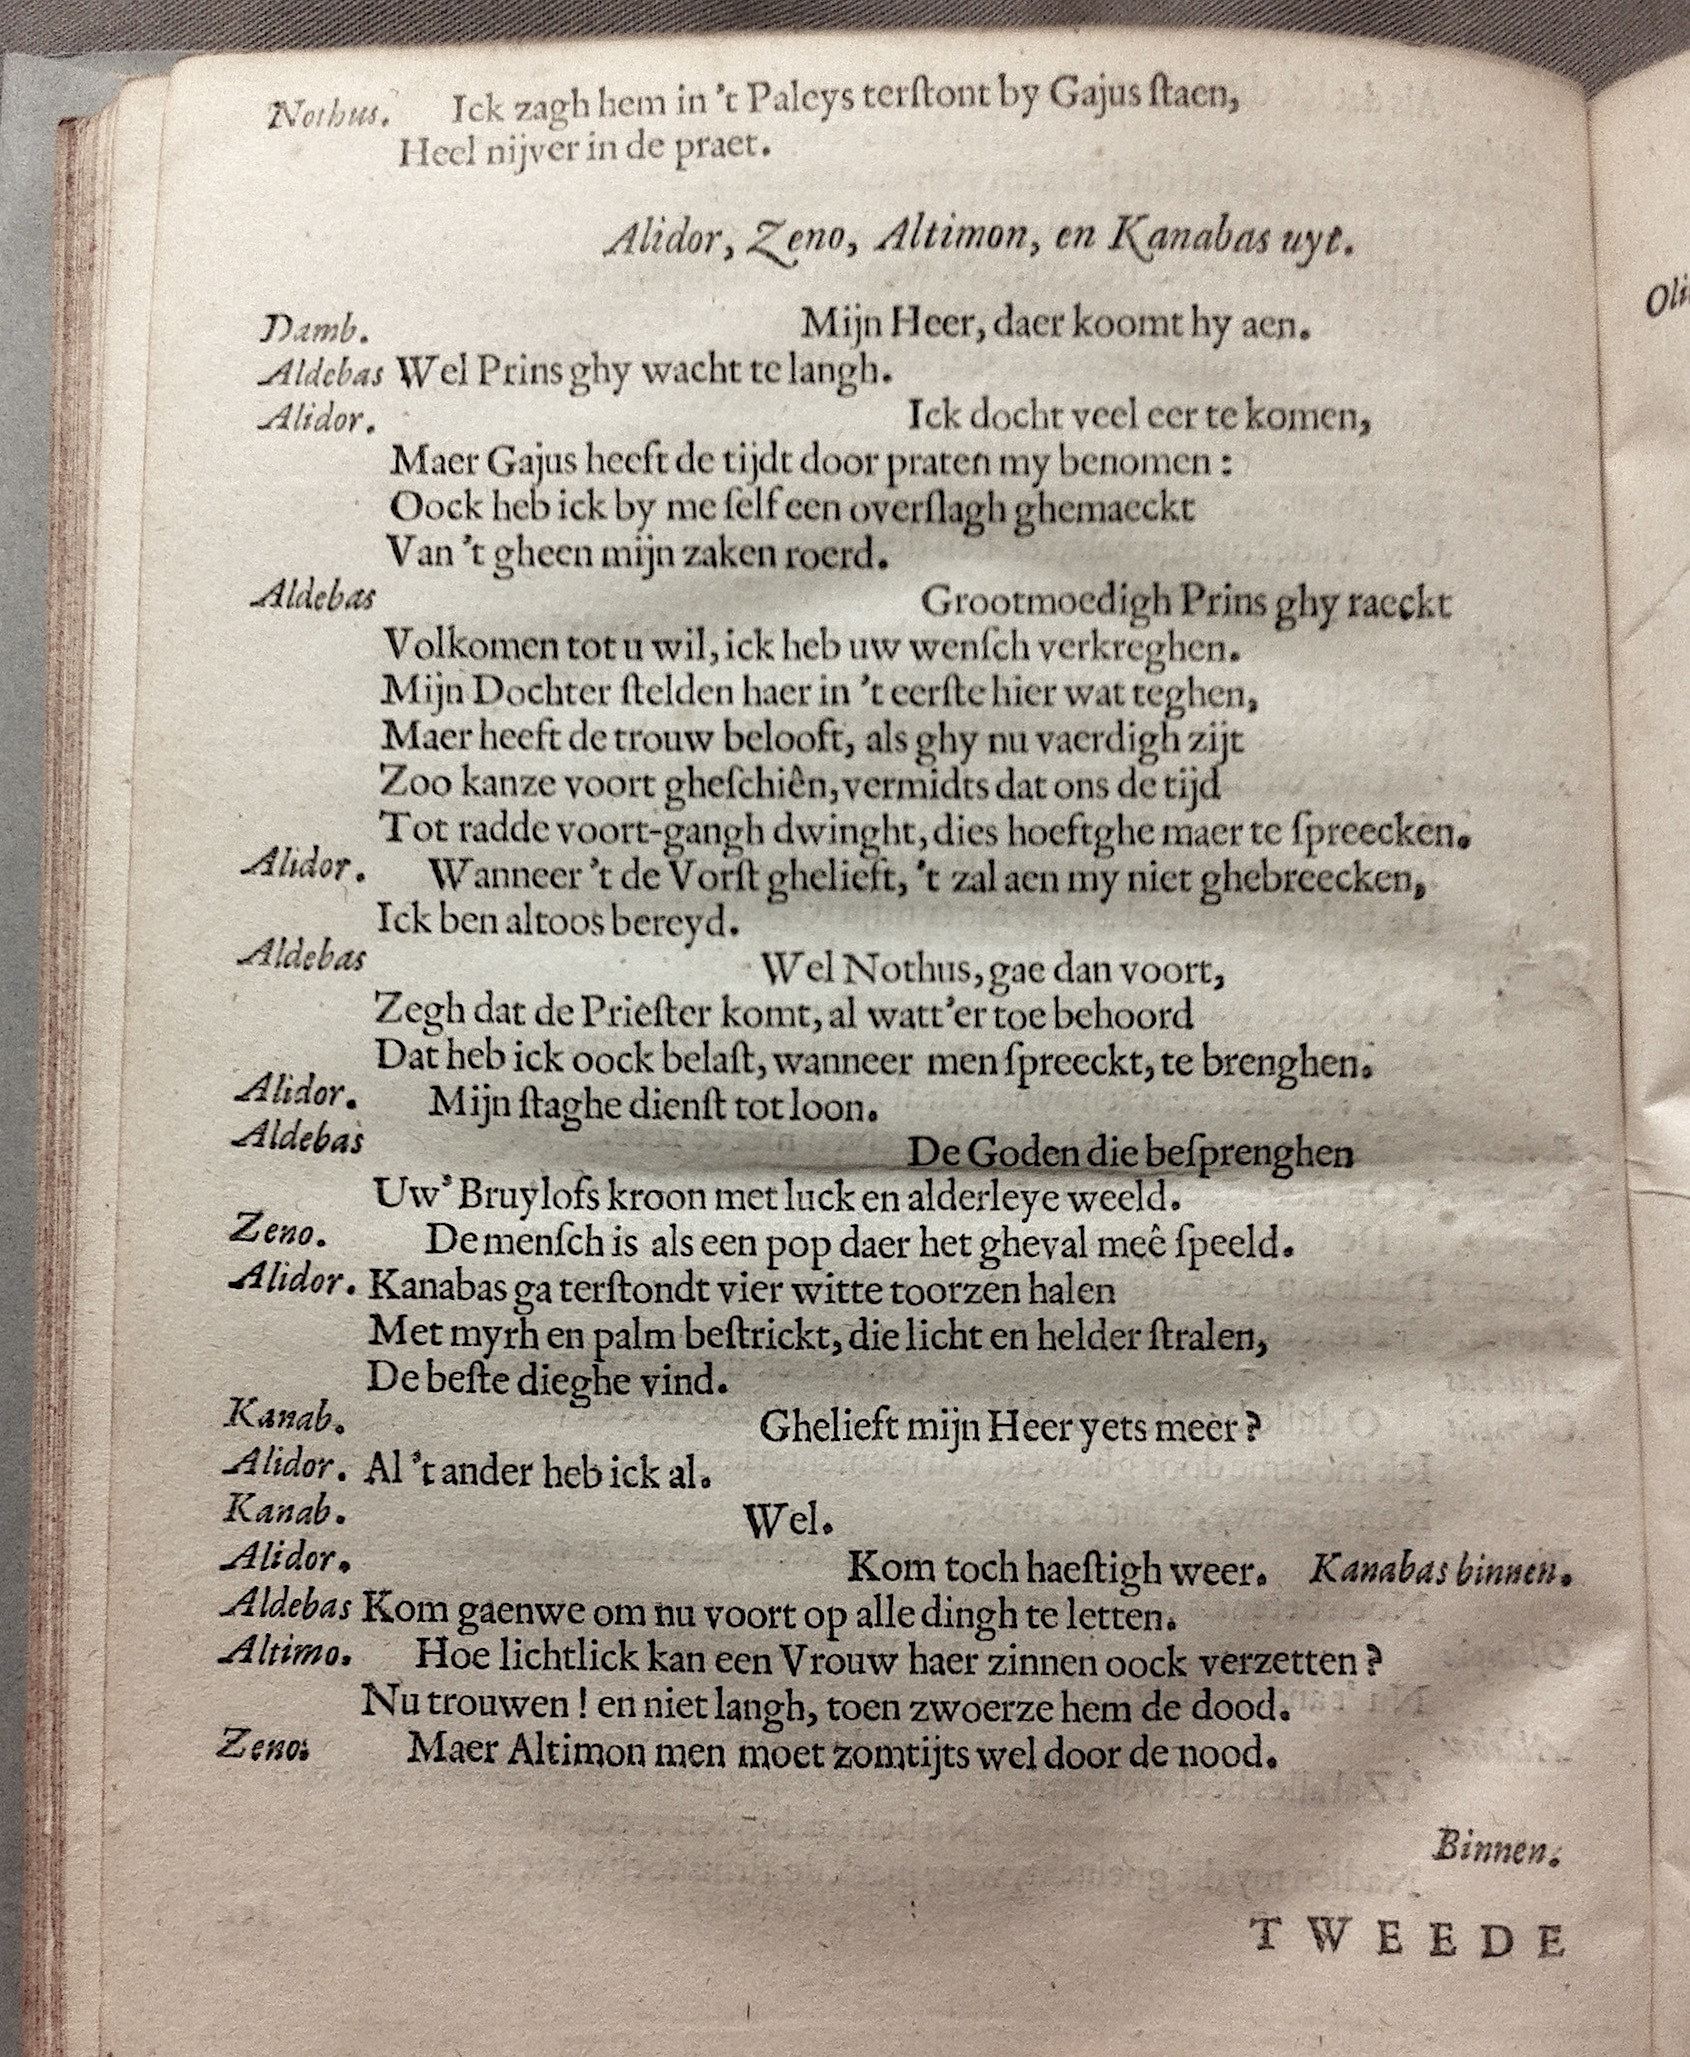 Nothus. Ick zagh hem in 't Paleys terſtont by Gajus ſtaen,
Heel nijver in de praet.
Alidor, Zeno, Altimon, en Kanabas uyt.
Damb. Mijn Heer, daer koomt hy aen.
Aldebas Wel Prins ghy wacht te langh.
Alidor. Ick docht veel eer te komen,
Maer Gajus heeft de tijdt door praten my benomen:
Oock heb ick by me ſelf een overſlagh ghemaeckt
Van 't gheen mijn zaken roerd.
Aldebas Grootmoedigh Prins ghy raeckt
Volkomen tot u wil, ick heb uw wenſch verkreghen.
Mijn Dochter ſtelden haer in 't eerſte hier wat teghen,
Maer heeft de trouw belooft, als ghy nu vaerdigh zijt
Zoo kanze voort gheſchiên, vermidts dat ons de tijd
Tot radde voort-gangh dwinght, dies hoeftghe maer te ſpreecken.
Alidor. Wanneer 't de Vorſt ghelieft, 't zal aen my niet ghebreecken,
Ick ben altoos bereyd.
Aldebas Wel Nothus, gae dan voort,
Zegh dat de Prieſter komt, al watt'er toe behoord
Dat heb ick oock belaſt, wanneer men ſpreeckt, te brenghen.
Alidor. Mijn ſtaghe dienſt tot loon.
Aldebas De Goden die beſprenghen
Uw' Bruylofs kroon met luck en alderleye weeld.
Zeno. De menſch is als een pop daer het gheval meê ſpeeld.
Alidor. Kanabas ga terſtondt vier witte toorzen halen
Met myrh en palm beſtrickt, die licht en helder ſtralen,
De beſte dieghe vind.
Kanab. Ghelieft mijn Heer yets meer?
Alidor. Al 't ander heb ick al.
Kanab. Wel.
Alidor. Kom toch haeſtigh weer. Kanabas binnen.
Aldebas Kom gaenwe om nu voort op alle dingh te letten.
Altimo. Hoe lichtlick kan een Vrouw haer zinnen oock verzetten?
Nu trouwen! en niet langh, toen zwoerze hem de dood.
Zeno. Maer Altimon men moet zomtijts wel door de nood.
Binnen.
TWEEDE